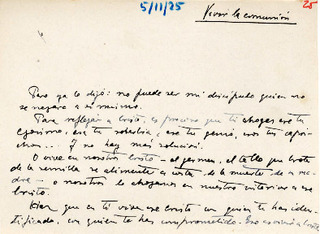 5/11/25
25
Vivir la comunión
Pero ya lo dijó: no puede ser mi discípulo quien no
se negare a sí mismo.
Para reflejar a Cristo, es preciso que tú ahogues ese tu
egoísmo, esa tu soberbia, ese tu genio, esos tus capri-
chos... Y no hay más solución.
O vive en nosotros Cristo - el germen, el tallo que brota
de la semilla se alimenta a costa de la muerte de su ma-
dre - o nosotros le ahogamos en nuestro interior a ese
Cristo.
Haz que en ti viva ese Cristo con quien te has iden-
tificado, con quien te has comprometido.